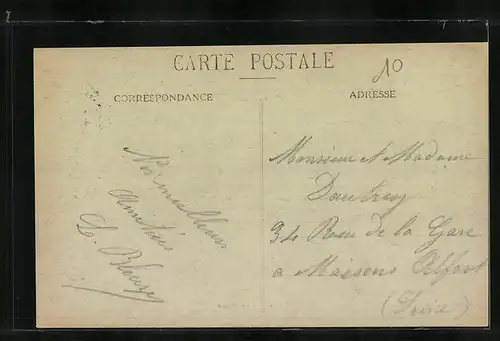 CARTE POSTALE
10
CORRESPONDANCE
ADRESSE
Nos meilleurs
Amitiés
Monsieur et Madame
34 Rue de la Gare
a Maisons Alfort
(Seine)